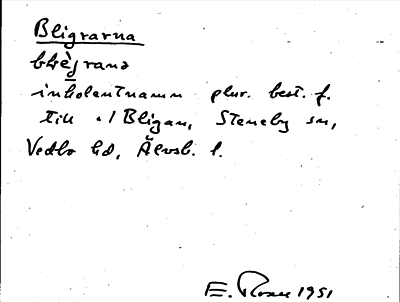 Bligrarna
inkolentnamn plur. best. f.
till ./ Bligan, Steneby sn,
Vedbo hd, Älvsb. l.
E. Rosen 1951